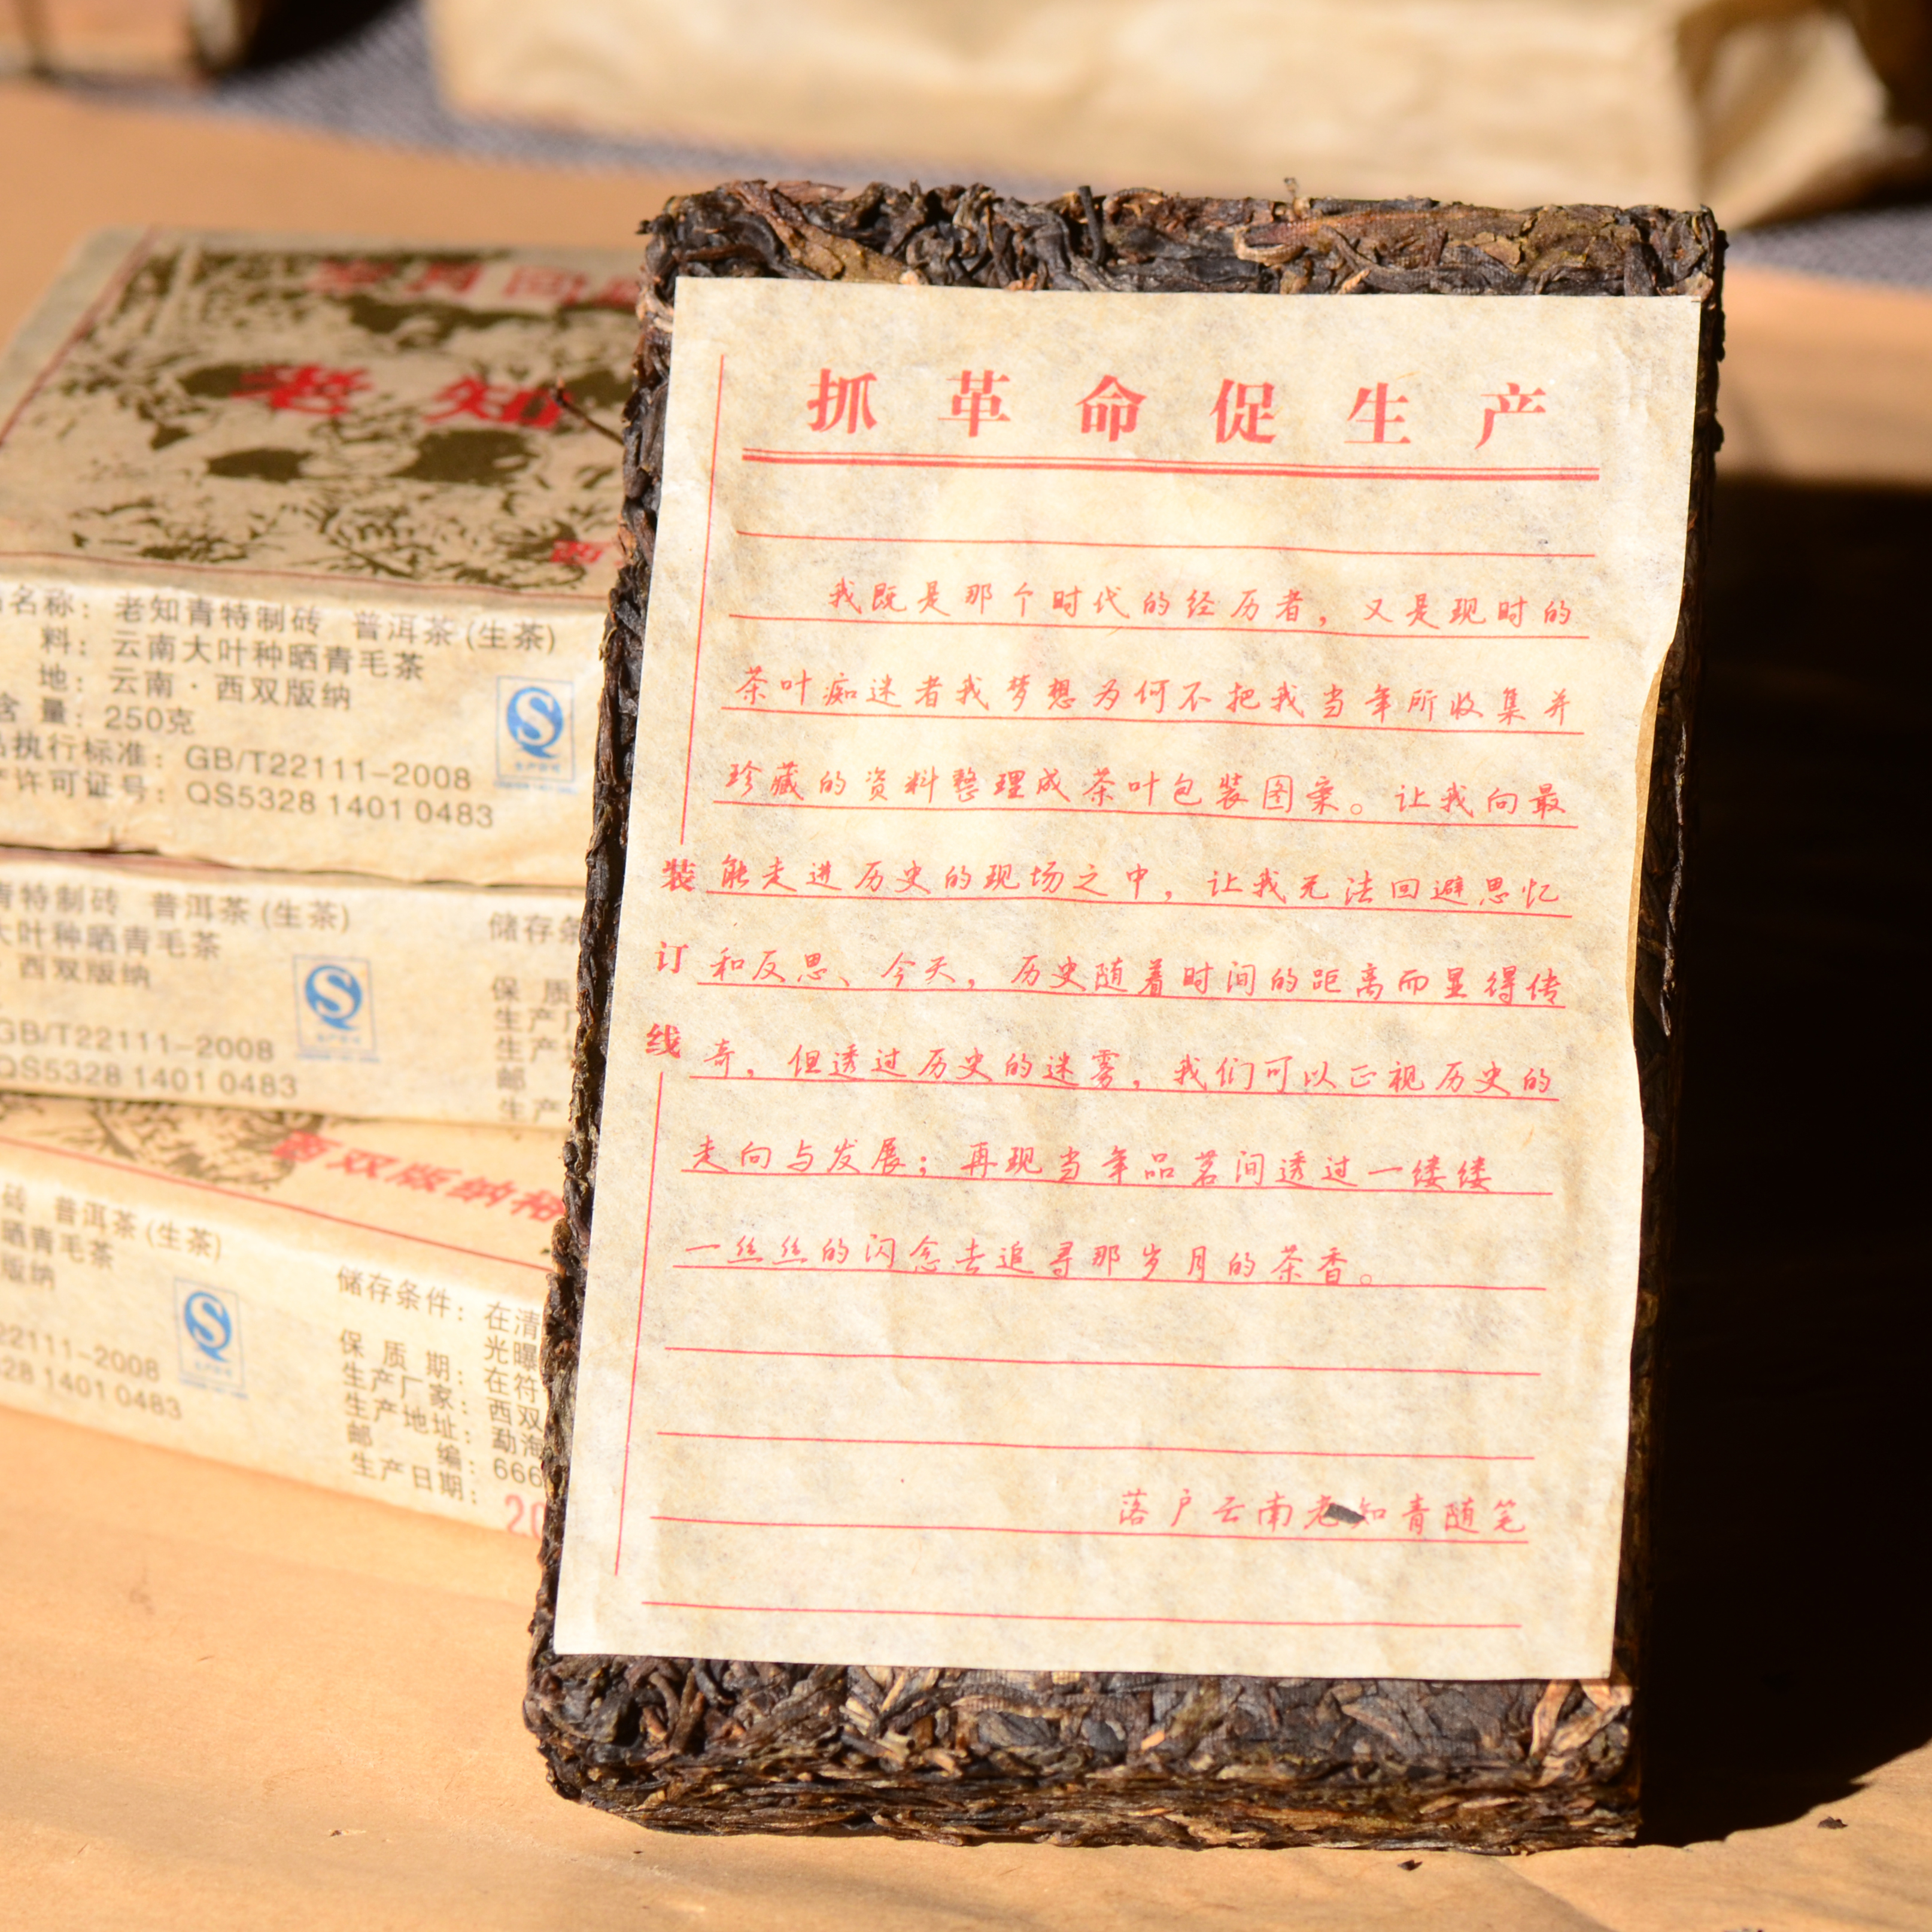 抓革命促生产
我既是那个时代的经历者，又是现时的
茶叶痴迷者我梦想为何不把我当年所收集并
珍藏的资料整理成茶叶包装图案。让我向最
能走进历史的现场之中，让我无法回避思忆
和反思、今天，历史随着时间的距离而显得传
奇，但透过历史的迷雾，我们可以正视历史的
走向与发展；再现当年品茗间透过一缕缕
一丝丝的闪念去追寻那岁月的茶香。
落户云南老知青随笔
装
订
线
老知
名称：老知青特制砖 普洱茶(生茶)
料：云南大叶种晒青毛茶
地：云南·西双版纳
含量：250克
执行标准：GB/T22111-2008
许可证号：QS5328 1401 0483
青特制砖 普洱茶(生茶)
大叶种晒青毛茶
·西双版纳
GB/T22111-2008
QS5328 1401 0483
储存条
保 质
生产厂
生产
邮
生产
西双版纳
砖 普洱茶(生茶)
晒青毛茶
版纳
22111-2008
328 1401 0483
储存条件：在清
光曝
保 质 期：在符
生产厂家：西双
生产地址：勐海
邮 编：666
生产日期：
20